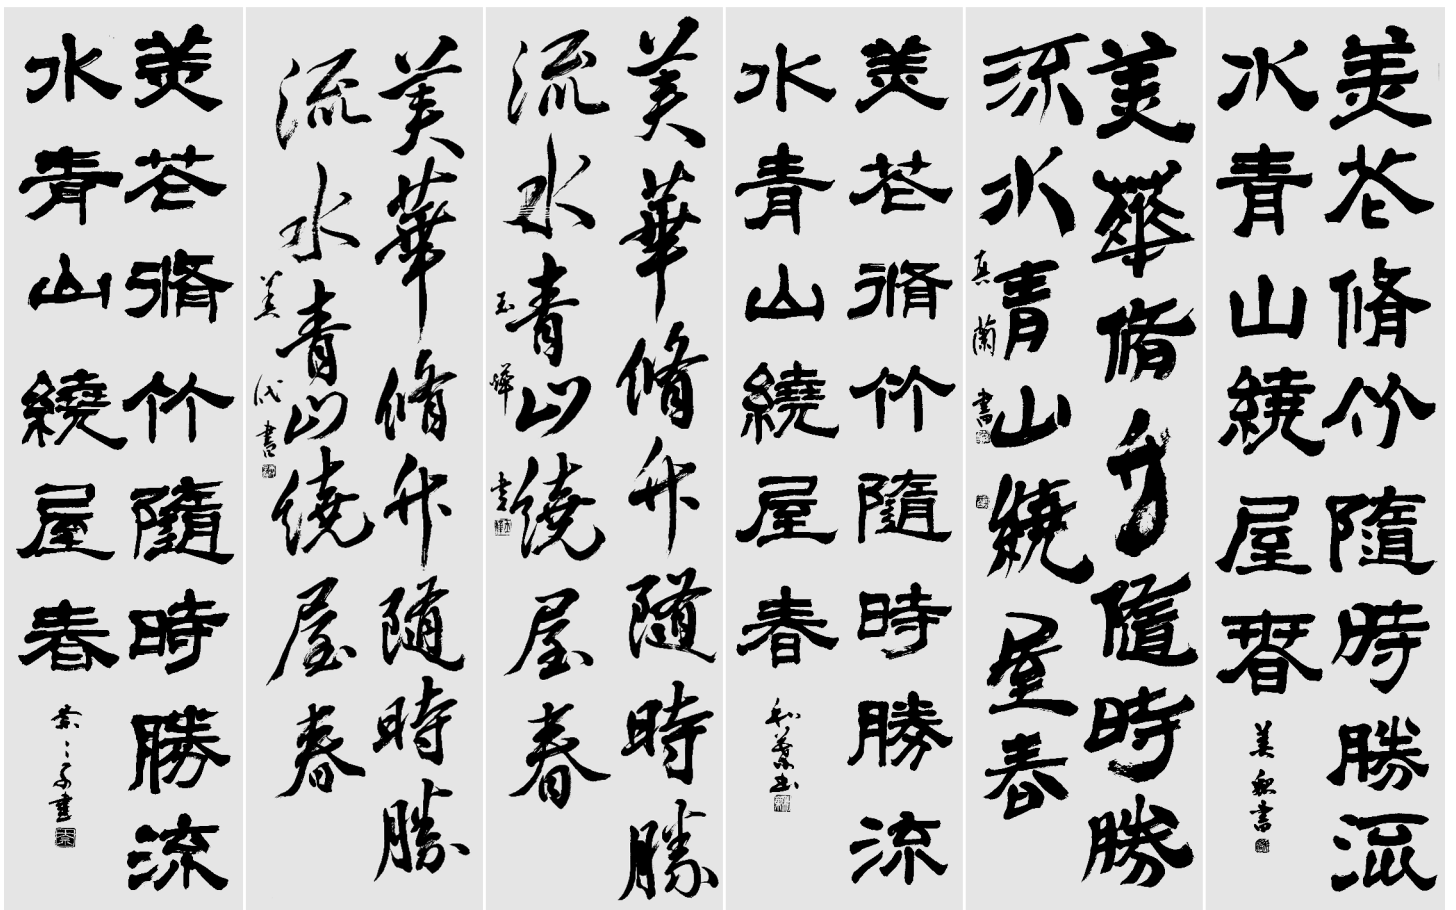 美花脩竹隨時勝流
水青山繞屋春
美書
美華脩竹隨時勝
流水青山繞屋春
真蘭書
美花脩竹隨時勝流
水青山繞屋春
和葉書
美華脩竹隨時勝
流水青山繞屋春
玉書
美華脩竹隨時勝
流水青山繞屋春
美代書
美花脩竹隨時勝流
水青山繞屋春
子書